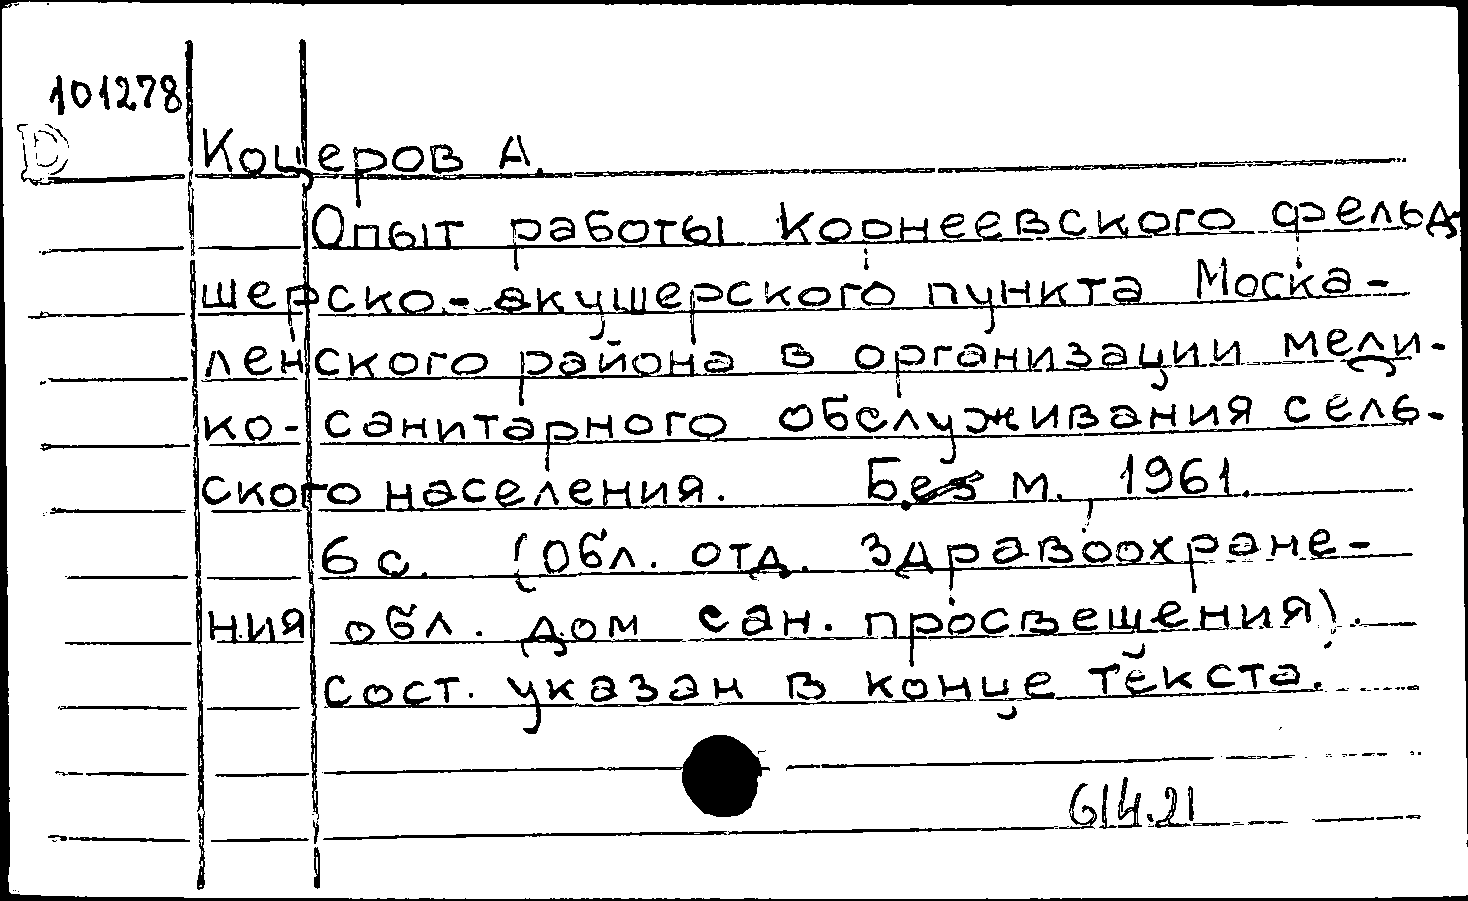 101278
D
Коцеров А.
Опыт работы Корнеевского фельд-
шерско-акушерского пункта Моска-
ленского района в организации меди-
ко-санитарного обслуживания сель-
ского населения. Без м., 1961.
6 с. (Обл. отд. здравоохране-
ния обл. дом сан. просвещения).
Сост. указан в конце текста.
614.21